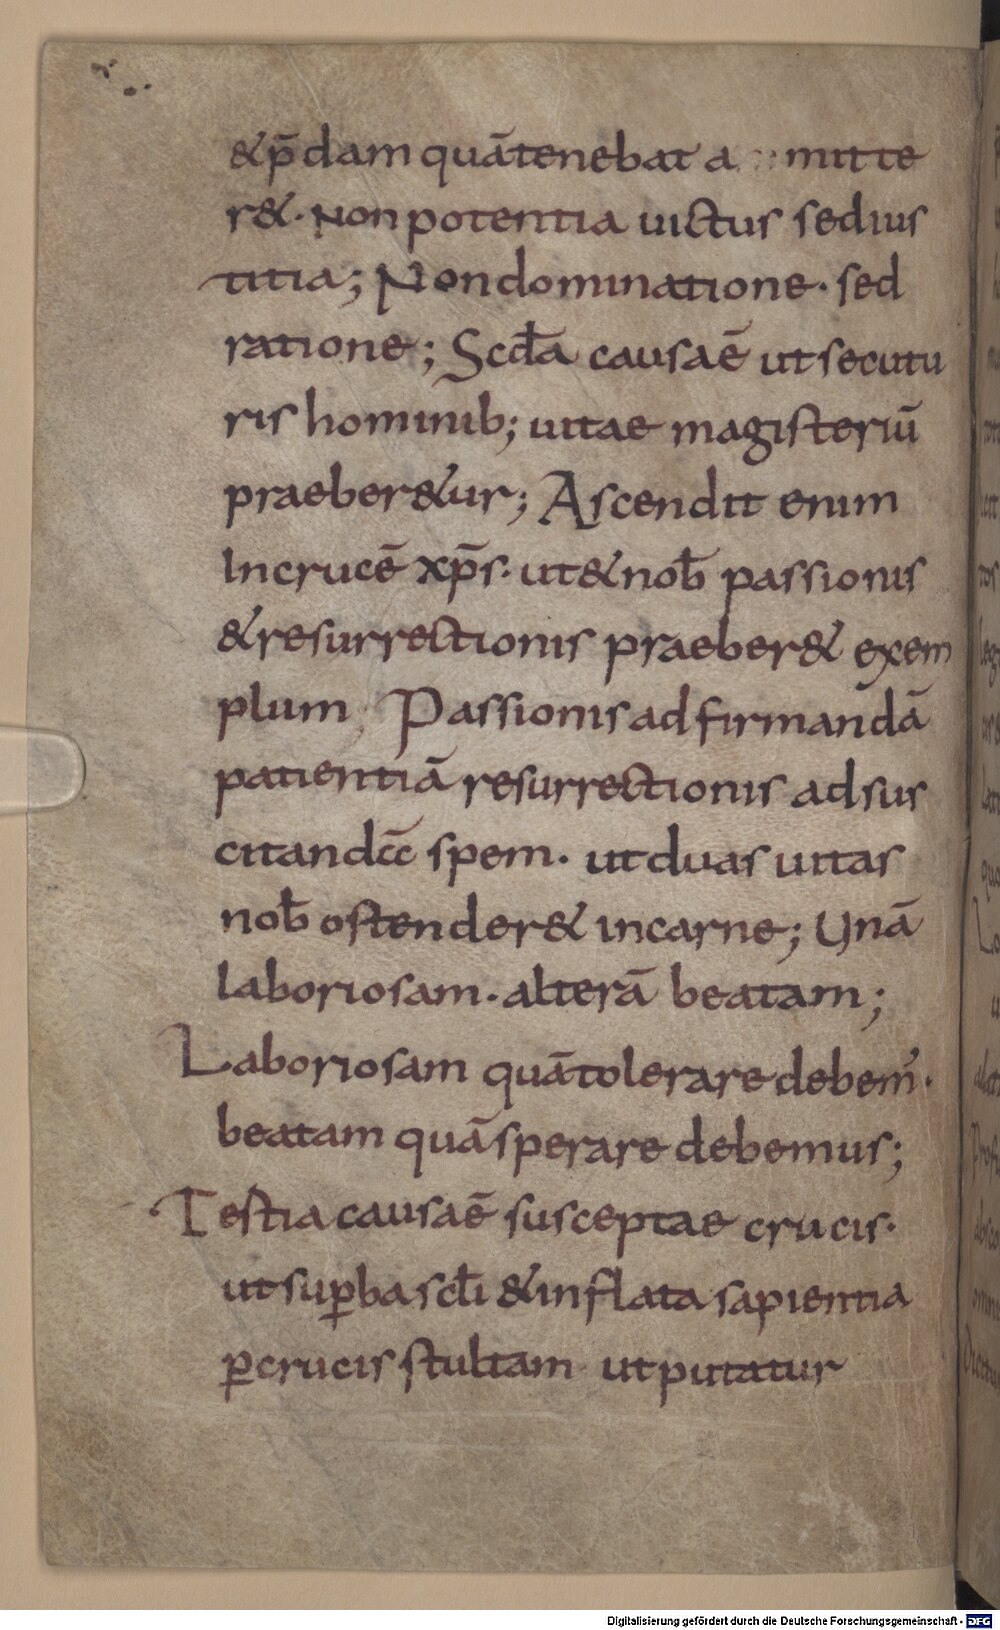 &p̄dam quātenebat a mitte
r&· Non potentia uictus sed ius
titia; Non dominatione· sed
ratione; Scd̄a causaē ut secutu
ris hominib; uitae magisteriū
praeber&ur; Ascendit enim
In crucē xp̄s· ut & nob̄ passionis
& resurrectionis praeber& exem
plum Passionis ad firmandā
patientiā resurrectionis ad sus
citandā spem· ut duas uitas
nob̄ ostender& in carne; Unā
laboriosam· alterā beatam;
Laboriosam quā tolerare debem̄·
beatam quā sperare debemus;
Testia causaē susceptae crucis·
ut sup̱ba scl̄i & inflata sapientia
p̱ crucis stultiam ut putatur
Digitalisierung gefördert durch die Deutsche Forschungsgemeinschaft - DFG